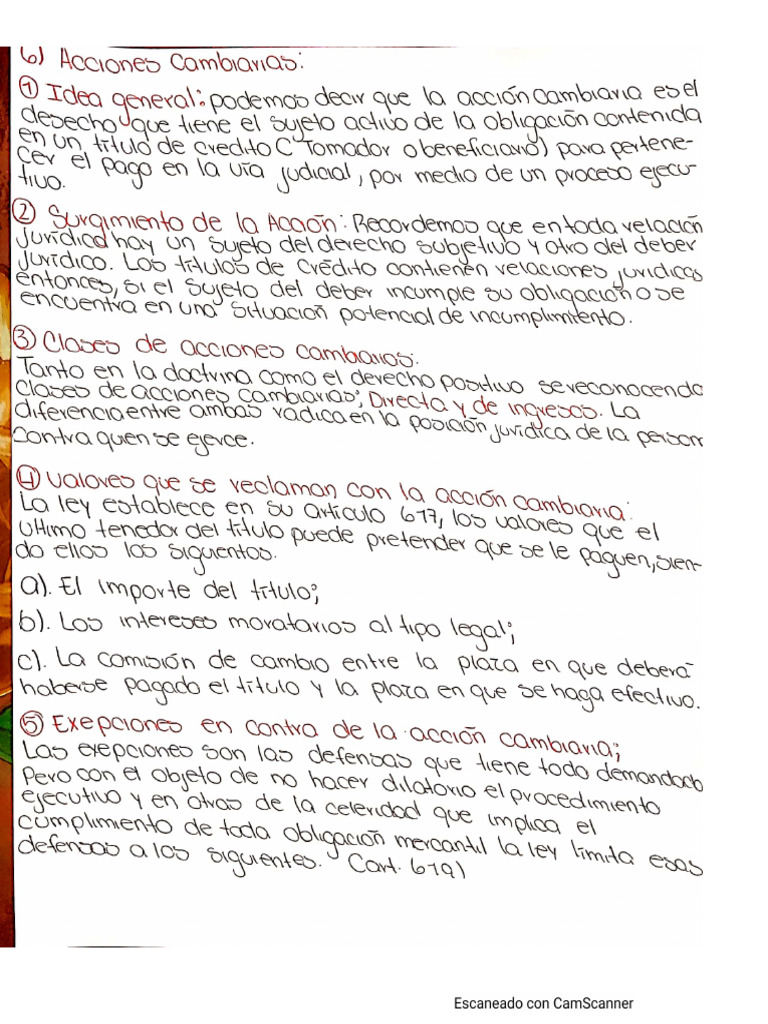 6) Acciones Cambiarias:
① Idea general: podemos decir que la acción cambiaria es el
desecho que tiene el sujeto activo de la obligación contenida
en un título de credito (Tomador o beneficiario) para pertene-
cer el pago en la vía judicial, por medio de un proceso ejecu-
tivo.
② Surgimiento de la Acción: Recordemos que en toda relación
jurídica hay un sujeto del derecho subjetivo y otro del deber
jurídico. Los títulos de crédito contienen relaciones juridicas
entonces, si el sujeto del deber incumple su obligación o se
encuentra en una situación potencial de incumplimiento.
③ Clases de acciones cambiarios:
Tanto en la doctrina como el derecho positivo se reconocendo
clases de acciones cambiarias; Directa y de ingresos. La
diferencia entre ambas radica en la posición jurídica de la person
contra quen se ejerce.
④ valores que se reclaman con la acción cambiaria:
La ley establece en su articulo 617, los valores que el
ultimo tenedor del título puede pretender que se le paguen, sien-
do ellos los siguientos.
a). El importe del título;
b). Los intereses moratarios al tipo legal;
c). La comisión de cambio entre la plaza en que deberá
haberse pagado el título y la plaza en que se haga efectivo.
⑤ Exepciones en contra de la acción cambiaria;
Las exepciones son las defensas que tiene todo demandado
Pero con el objeto de no hacer dilatorio el procedimiento
ejecutivo y en otras de la celeridad que implica el
cumplimiento de toda obligación mercantil la ley límita esas
defensas a los siguientes. (art. 619)
Escaneado con CamScanner